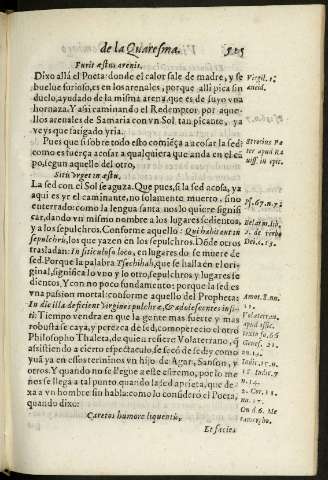 de la Quaresma. 515
Furit æstus arenis.
Dixo allá el Poeta: donde el calor sale de madre, y se
buelue furioso, es en los arenales, porque alli pica sin
duelo, ayudado de la misma arena, que es de suyo vna
hornaza. Y asi caminando el Redemptor por aque-
llos arenales de Samaria con vn Sol tan picante, ya
veys que fatigado yria.
Pues que si sobre todo esto comiẽça a acosar la sed:
como esfuerça acosar a qualquiera que anda en el cã
po, segun aquello del otro.
Sitis vrget in æstu.
La sed con el Sol se aguza. Que pues, si la sed acosa, ya
aqui es yr el caminante, no solamente muerto, sino
enterrado: como la lengua santa nos lo quiere signifi
car, dando vn mismo nombre a los lugares sedientos,
y a los sepulchros. Conforme aquello: Qui habitant in
sepulchris, los que yazen en los sepulchros. Dõde otros
trasladan: In siticuloso loco, en lugares do se muere de
sed. Porque la palabra que se halla en el ori-
ginal, significa lo vno y lo otro, sepulchros y lugares se
dientos. Y con no poco fundamento: porque la sed es
vna passion mortal: conforme aquello del Propheta:
In die illa deficient virgines pulchræ, & adolescentes in si-
ti: Tiempo vendra en que la gente mas fuerte y mas
robusta se caya, y perezca de sed, como perecio el otro
Philosopho Thaleta, de quien refiere Volaterrano, q̃
assistiendo a cierto espectaculo, se secó de sed: y como
yua ya en estos terminos vn hijo de Agar, Sanson, y
otros. Y quando no se llegue a este estremo, por lo me
nos se llega a tal punto quando la sed aprieta, que de-
xa a vn hombre sin habla: como lo consideró el Poeta,
quando dixo:
Caret os humore liquentũ,
Et facies
Virgil. 1.
æneid.
Psf. 67. n. 7.
Amos. 8. nu.
13.
Volaterran.
Genes. 21.